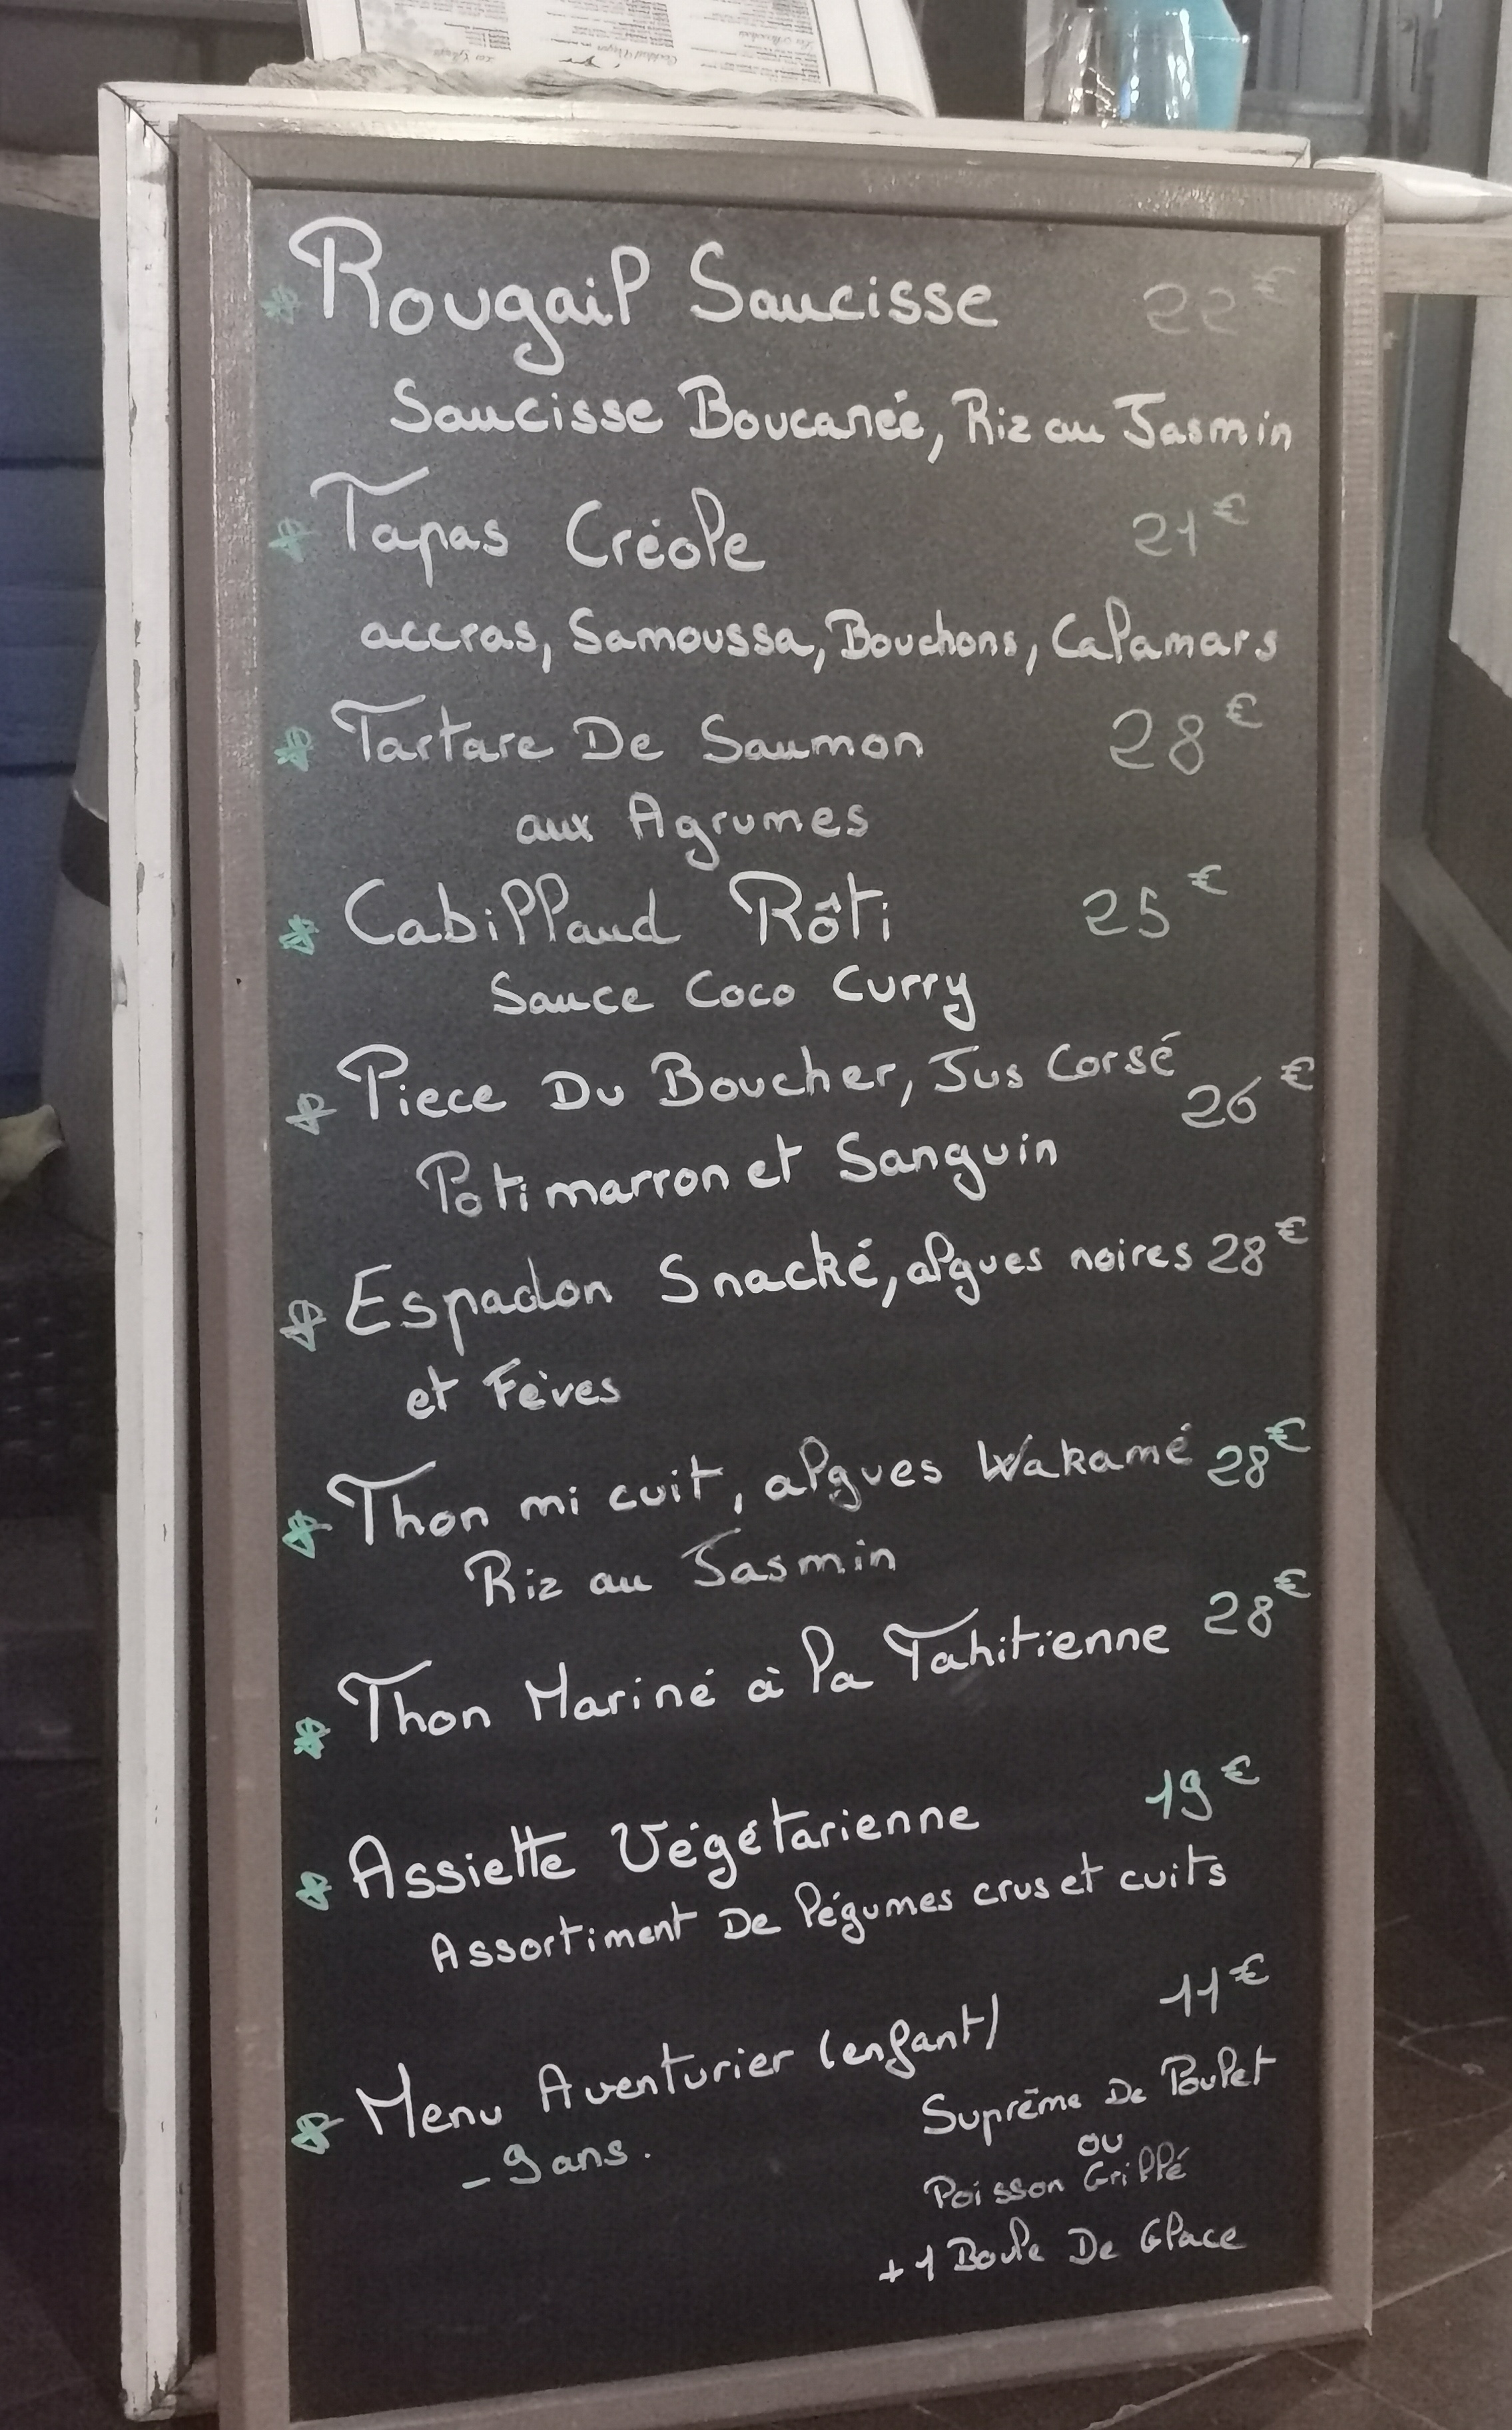 * Rougail Saucisse 22€
Saucisse Boucanée, Riz au Jasmin
* Tapas Créole 21€
accras, Samoussa, Bouchons, Calamars
* Tartare De Saumon 28€
aux Agrumes
* Cabillaud Rôti 25€
Sauce Coco Curry
* Piece Du Boucher, Jus Corsé 26€
Potimarron et Sanguin
* Espadon Snacké, algues noires 28€
et Fèves
* Thon mi cuit, algues Wakamé 28€
Riz au Jasmin
* Thon Mariné à la Tahitienne 28€
* Assiette Végétarienne 19€
Assortiment De légumes crus et cuits
* Menu Aventurier (enfant) 11€
- 9 ans.
Suprême De Poulet
ou
Poisson Grillé
+ 1 Boule De Glace